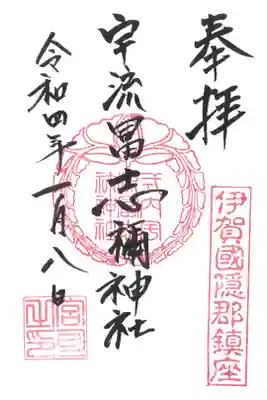 奉拝
伊賀國隠郡鎮座
宇流冨志禰神社
令和四年一月八日